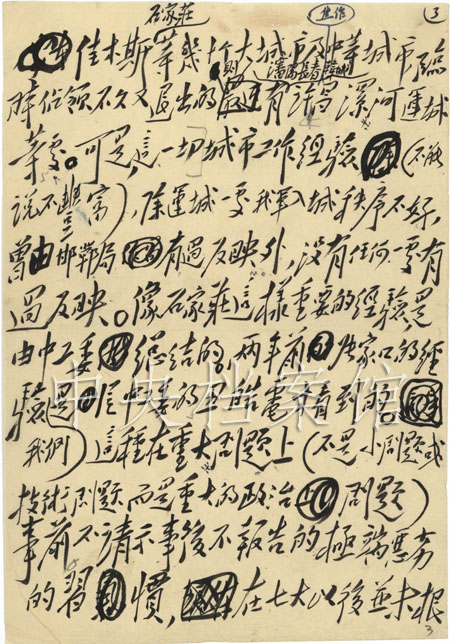 石家莊 焦作 3
佳木斯等幾個大城市及中等城市臨
時佔領不久又退出的還有漯河運城
等處。可是，這一切城市工作經驗（不能
說不豐富），除運城一處我軍入城秩序不好，
曾由邯鄲局有過反映外，沒有任何一處有
過反映。像石家莊這樣重要的經驗是
由中工委總結的，兩年前張家口的經
驗是
我們）這種在重大問題上（不是小問題或
技術問題而是重大的政治問題）
事前不請示事後不報告的極端惡劣
的習慣，在七大以後並未根
中央档案馆
3